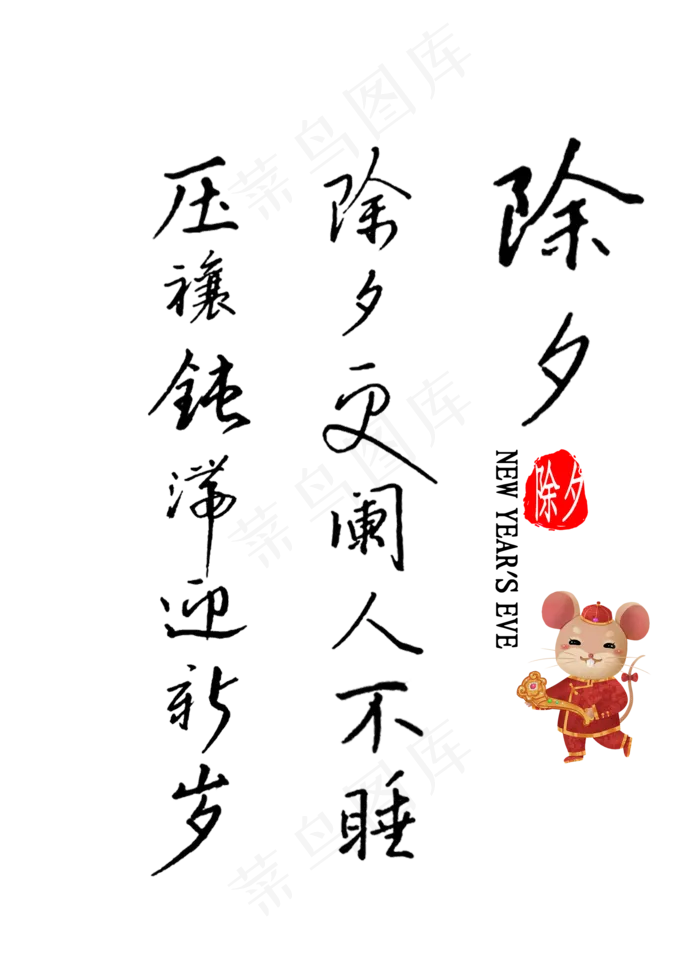 除夕
除夕
NEW YEAR'S EVE
除夕更阑人不睡
压禳钝滞迎新岁
菜鸟图库
菜鸟图库
菜鸟图库